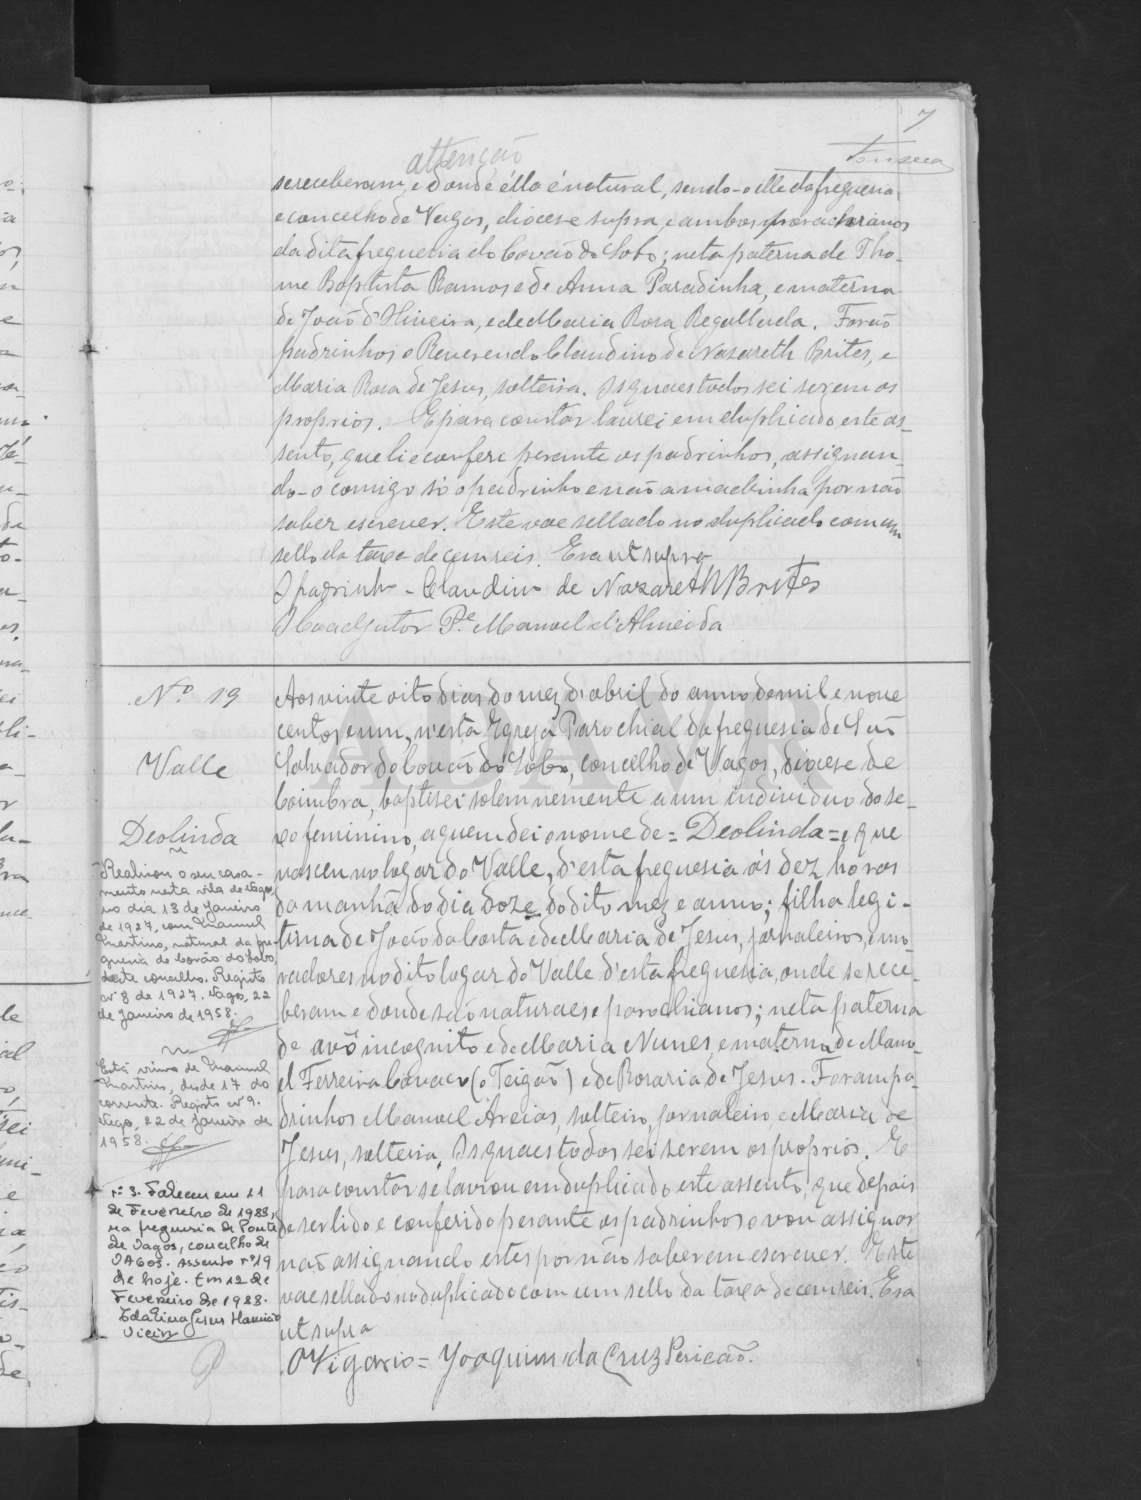 7
Fonseca
attenção
se receberam, e donde élla é natural, sendo-o elle da freguesia
e concelho de Vagos, diocese supra, e ambos parochianos
da dita freguesia do Covão do Lobo; neta paterna de Tho-
me Baptista Ramos e de Anna Paradinha, e materna
de João d'Oliveira, e de Maria Rosa Regallada. Forão
padrinhos o Reverendo Claudino de Nazareth Brites, e
Maria Rosa de Jesus, solteira. Os quaes todos sei serem os
proprios. E para constar lavrei em duplicado este as-
sento, que li e conferi perante os padrinhos, assignan-
do-o comigo só o padrinho e não a madrinha por não
saber escrever. Este vae sellado no duplicado com um
sello da taxa de cem reis. Era ut supra
O padrinho - Claudino de Nazareth Brites
O Coadjutor P.e Manoel d'Almeida
Nº 19
Valle
Deolinda
Aos vinte oito dias do mez d'abril do anno de mil e nove
centos e um, n'esta Egreja Parochial da freguesia de São
Salvador do Covão do Lobo, concelho de Vagos, diocese de
Coimbra, baptisei solemnemente a um individuo do se-
xo feminino, a quem dei o nome de = Deolinda = e que
nasceu no logar do Valle, d'esta freguesia ás dez horas
da manhã do dia doze do dito mez e anno; filha legi-
tima de João da Costa e de Maria de Jesus, jornaleiros, e mo-
radores no dito logar do Valle d'esta freguesia, onde se rece-
beram e donde são naturaes e parochianos; neta paterna
de avô incognito e de Maria Nunes, e materna de Mano-
el Ferreira Cavaco (o Teigão) e de Rosaria de Jesus. Foram pa-
drinhos Manoel Areias, solteiro, jornaleiro, e Maria de
Jesus, solteira. Os quaes todos sei serem os proprios. E
para constar se lavrou em duplicado este assento, que depois
de ser lido e conferido perante os padrinhos o vou assignar
não assignando estes por não saberem escrever. Este
vae sellado no duplicado com um sello da taxa de cem reis. Era
ut supra
O Vigario = Joaquim da Cruz Pericão.
Realizou o seu casa-
mento nesta vila de Vagos,
no dia 13 de Janeiro
de 1927, com Manuel
Martins, natural da fre-
guesia do Covão do Lobo,
deste concelho. Registo
nº 8 de 1927. Vagos, 22
de Janeiro de 1958.
Está viuva de Manuel
Martins, desde 17 do
corrente. Registo nº 9.
Vagos, 22 de Janeiro de
1958.
nº 3. Faleceu em 11
de Fevereiro de 1988,
na freguesia de Ponte
de Vagos, concelho de
VAGOS. Assento nº 19
de hoje. Em 12 de
Fevereiro de 1988.
ADAVR